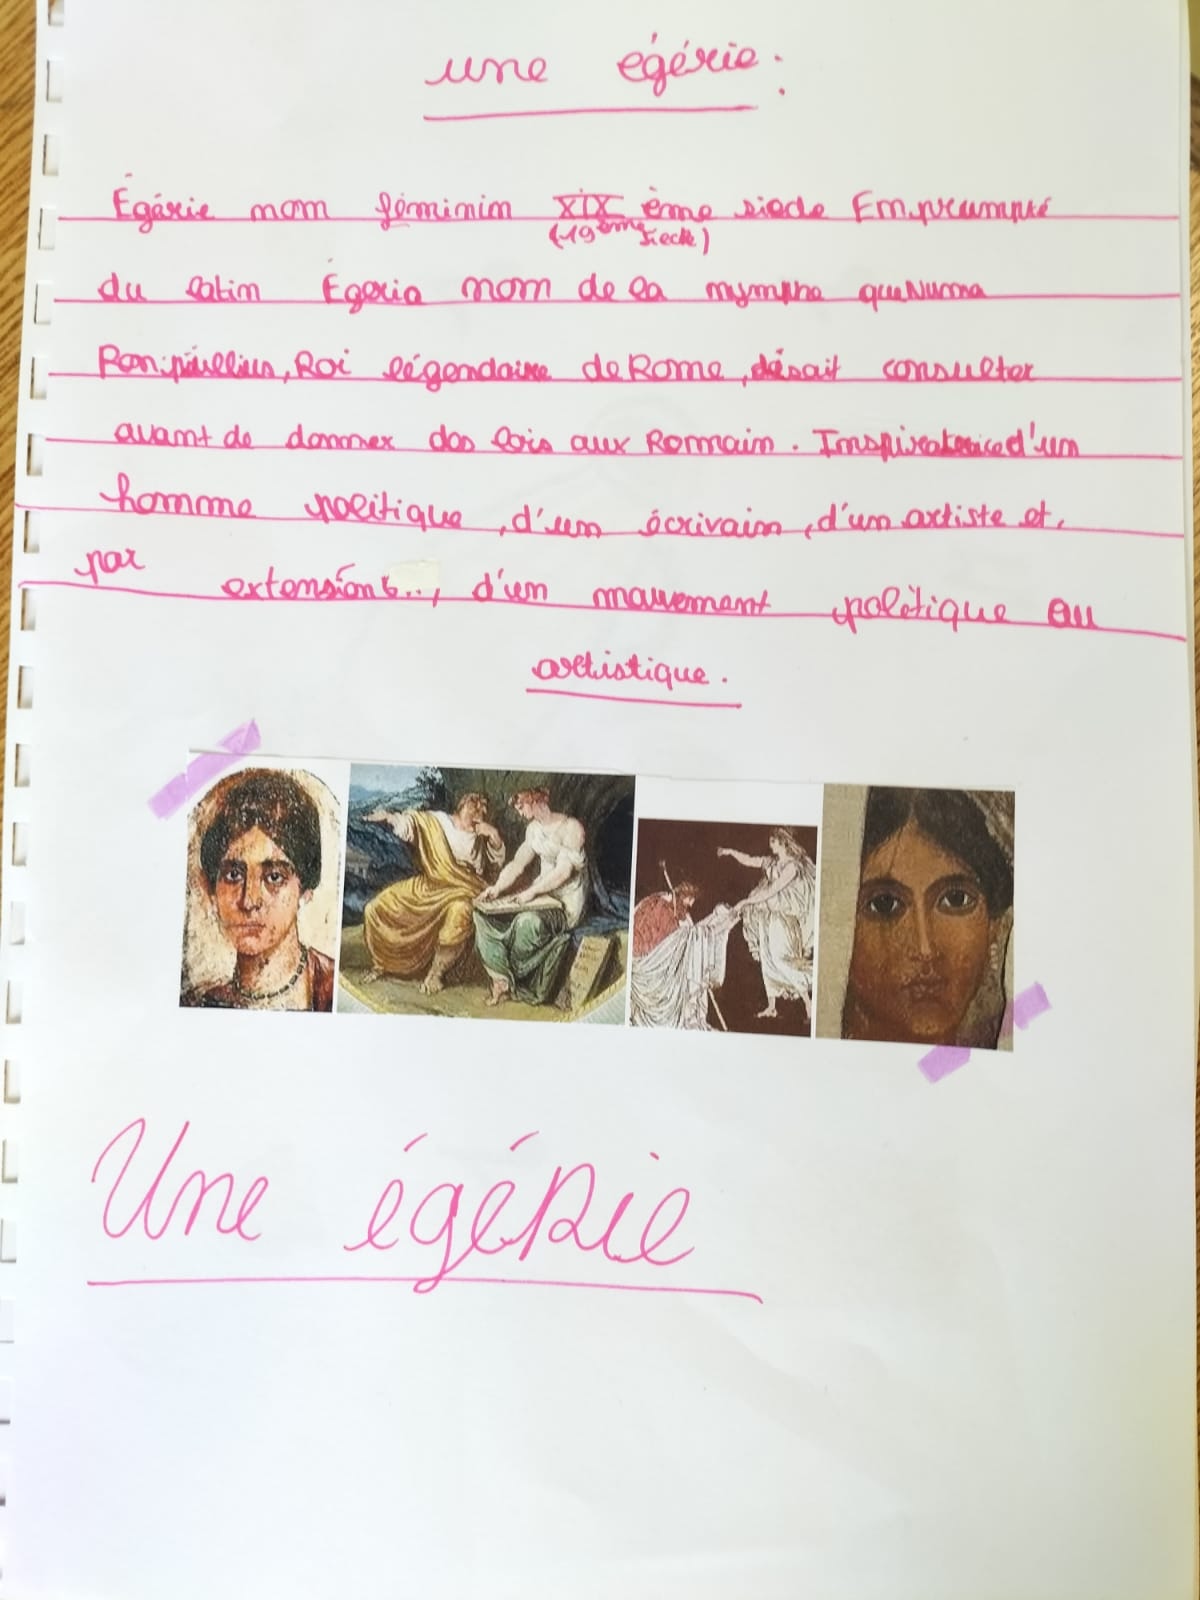 une égérie :
Égérie nom féminin XIX ème siecle Emprumpté
(19ème siecle)
du latim Égeria nom de la nymphe que Numa
Pompillius, Roi légendaire de Rome, disait consulter
avant de donner des lois aux Romain. Inspiratrice d'un
homme politique, d'un écrivain, d'un artiste et,
par extension..., d'un mouvement politique ou
artistique.
Une égérie